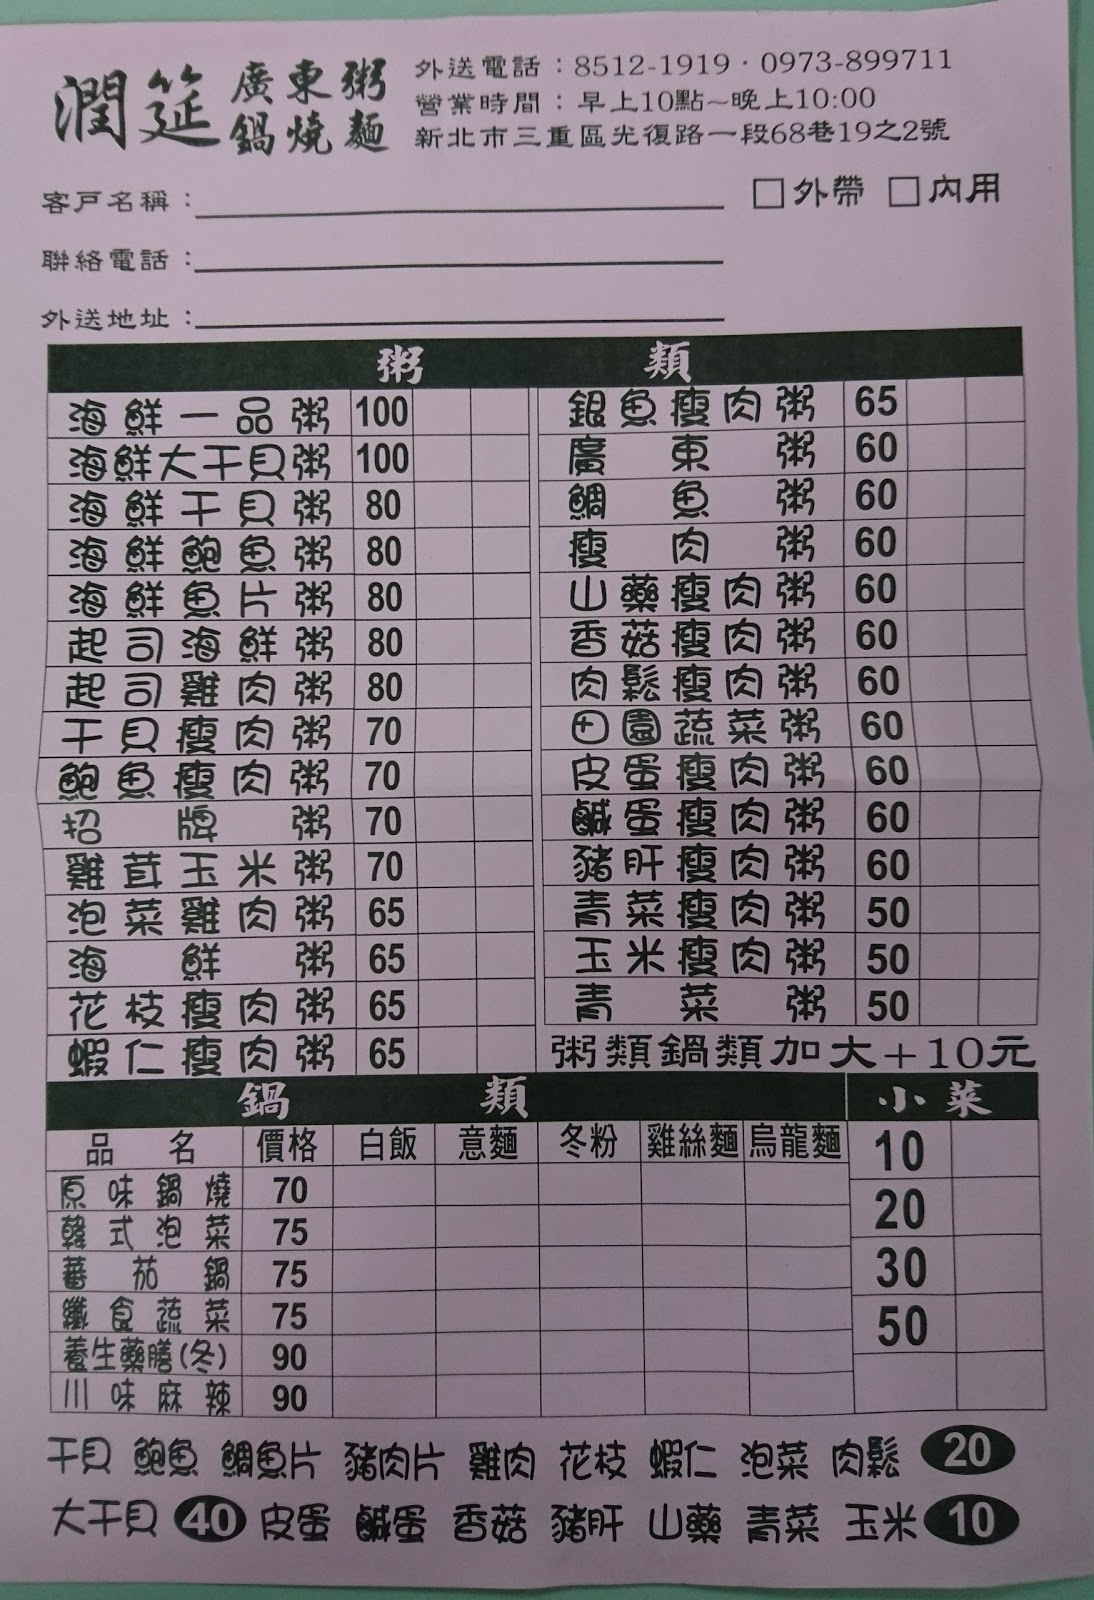 潤筵 廣東粥 鍋燒麵
外送電話：8512-1919．0973-899711
營業時間：早上10點~晚上10:00
新北市三重區光復路一段68巷19之2號
客戶名稱：
□外帶 □內用
聯絡電話：
外送地址：
粥類
海鮮一品粥 100
海鮮大干貝粥 100
海鮮干貝粥 80
海鮮鮑魚粥 80
海鮮魚片粥 80
起司海鮮粥 80
起司雞肉粥 80
干貝瘦肉粥 70
鮑魚瘦肉粥 70
招牌粥 70
雞茸玉米粥 70
泡菜雞肉粥 65
海鮮粥 65
花枝瘦肉粥 65
蝦仁瘦肉粥 65
銀魚瘦肉粥 65
廣東粥 60
鯛魚粥 60
瘦肉粥 60
山藥瘦肉粥 60
香菇瘦肉粥 60
肉鬆瘦肉粥 60
田園蔬菜粥 60
皮蛋瘦肉粥 60
鹹蛋瘦肉粥 60
豬肝瘦肉粥 60
青菜瘦肉粥 50
玉米瘦肉粥 50
青菜粥 50
粥類鍋類加大+10元
鍋類
品名 價格 白飯 意麵 冬粉 雞絲麵 烏龍麵
原味鍋燒 70
韓式泡菜 75
蕃茄鍋 75
纖食蔬菜 75
養生藥膳(冬) 90
川味麻辣 90
小菜
10
20
30
50
干貝 鮑魚 鯛魚片 豬肉片 雞肉 花枝 蝦仁 泡菜 肉鬆 20
大干貝 40 皮蛋 鹹蛋 香菇 豬肝 山藥 青菜 玉米 10